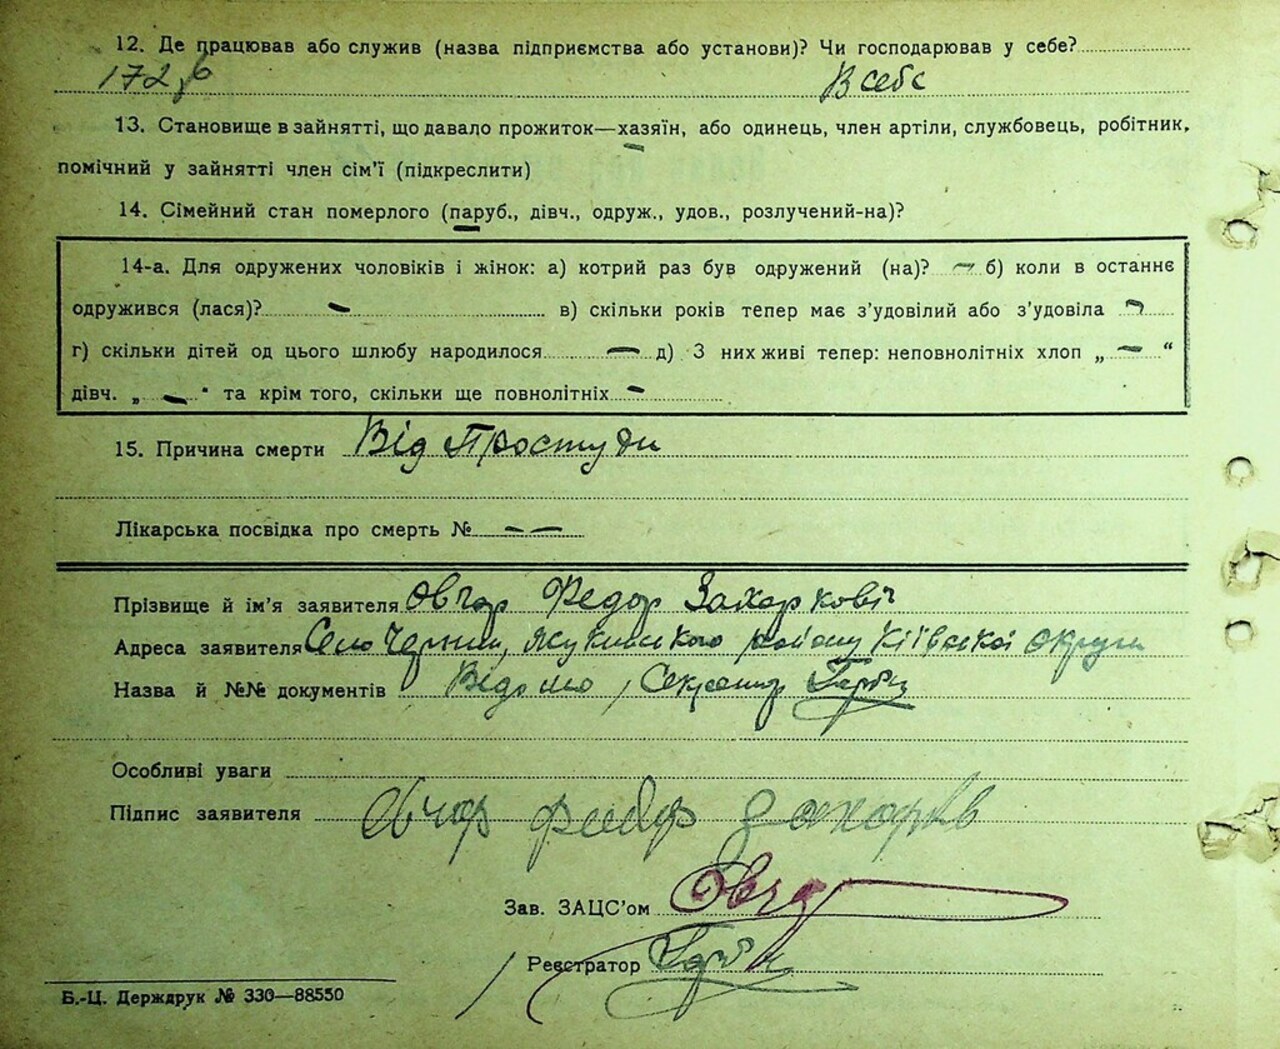 12. Де працював або служив (назва підприємства або установи)? Чи господарював у себе?
172 В себе
13. Становище в зайнятті, що давало прожиток—хазяїн, або одинець, член артіли, службовець, робітник,
помічний у зайнятті член сім'ї (підкреслити)
14. Сімейний стан померлого (паруб., дівч., одруж., удов., розлучений-на)?
14-а. Для одружених чоловіків і жінок: а) котрий раз був одружений (на)? — б) коли в останнє
одружився (лася)? — в) скільки років тепер має з'удовілий або з'удовіла —
г) скільки дітей од цього шлюбу народилося — д) З них живі тепер: неповнолітніх хлоп „ — “
дівч. „ — " та крім того, скільки ще повнолітніх —
15. Причина смерти Від Простуди
Лікарська посвідка про смерть № — —
Прізвище й ім'я заявителя Овчар Федор Захаркович
Адреса заявителя Село Черн, району Київської округи
Назва й №№ документів Відомо, Секретар
Особливі уваги
Підпис заявителя Овчар федор захарків
Зав. ЗАЦС'ом Овчар
Реєстратор
Б.-Ц. Держдрук № 330—88550